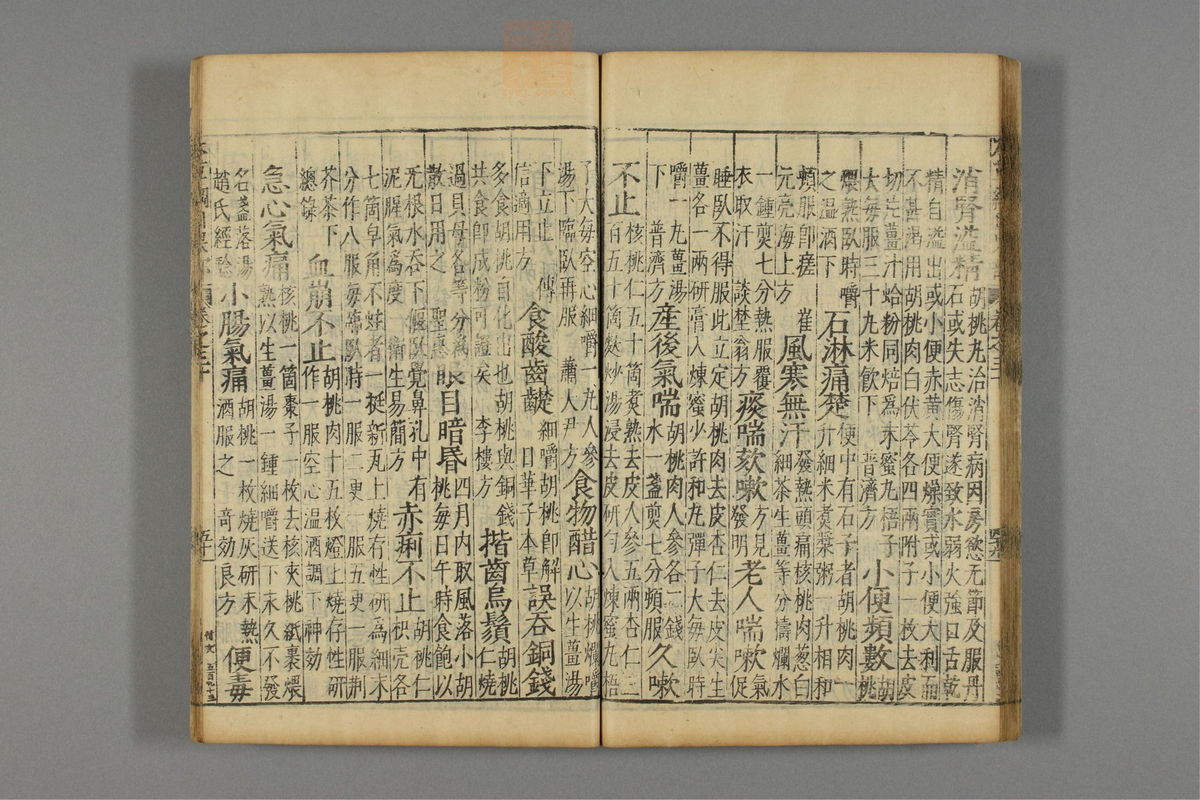 消腎溢精
胡桃丸治消腎病因房慾无節及服丹
石或失志傷腎遂致水弱火強口舌乾
精自溢出或小便赤黃大便燥實或小便大利而
不甚渴用胡桃肉白伏苓各四兩附子一枚去皮
切片薑汁蛤粉同焙爲末蜜丸梧子
大每服三十丸米飲下 普濟方
小便頻數
胡
桃
煨熟臥時嚼
之溫酒下
石淋痛楚
便中有石子者胡桃肉一
升細米煮漿粥一升相和
頓服卽瘥 崔
元亮海上方
風寒無汗
發熱頭痛核桃肉葱白
細茶生薑等分擣爛水
一鍾煎七分熱服覆
衣取汗 談埜翁方
痰喘欬嗽
方見
發明
老人喘嗽
氣
促
睡臥不得服此立定胡桃肉去皮杏仁去皮尖生
薑各一兩研膏入煉蜜少許和丸彈子大每臥時
嚼一丸薑湯
下 普濟方
産後氣喘
胡桃肉人參各二錢
水一盞煎七分頓服
久嗽
不止
核桃仁五十箇煮熟去皮人參五兩杏仁三
百五十箇麩炒湯浸去皮研勻入煉蜜丸梧
子大每空心細嚼一丸人參
湯下臨臥再服 蕭人尹方
食物醋心
胡桃爛嚼
以生薑湯
下立止 傳
信適用方
食酸齒齼
細嚼胡桃卽解
日華子本草
誤吞銅錢
多食胡桃自化出也胡桃與銅錢
共食卽成粉可證矣 李樓方
揩齒烏鬚
胡桃
仁燒
過貝母各等分爲
散日用之 聖惠
眼目暗昬
四月內取風落小胡
桃每日午時食飽以
无根水吞下偃臥覺鼻孔中有
泥腥氣爲度 衞生易簡方
赤痢不止
胡桃仁
枳壳各
七箇皁角不蛀者一挺新瓦上燒存性研爲細末
分作八服每臨臥時一服二更一服五更一服荆
芥茶下
總錄
血崩不止
胡桃肉十五枚燈上燒存性研
作一服空心溫酒調下神効
急心氣痛
核桃一箇棗子一枚去核夾桃紙裹煨
熟以生薑湯一鍾細嚼送下末久不發
名盞落湯
趙氏經驗
小腸氣痛
胡桃一枚燒灰研末熱
酒服之 奇効良方
便毒